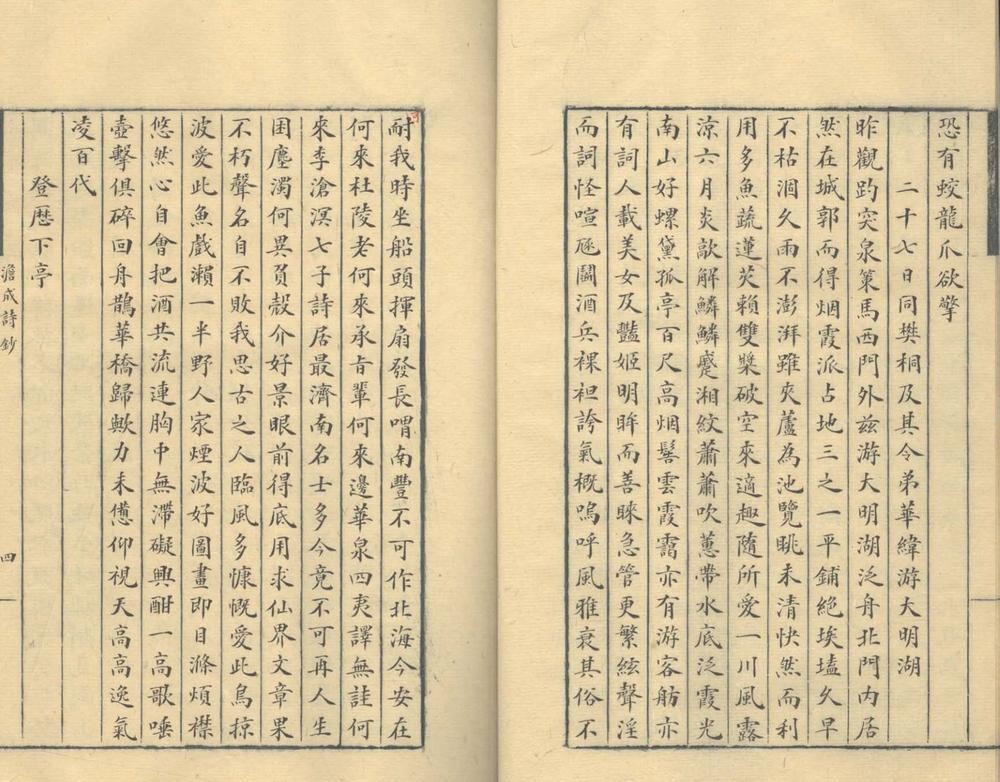 恐有蛟龍爪欲擎
二十七日同樊桐及其令弟華緯游大明湖
昨觀趵突泉策馬西門外兹游大明湖泛舟北門內居
然在城郭而得烟霞派占地三之一平鋪絶埃壒久旱
不枯涸久雨不澎湃雖夾蘆為池覽眺未清快然而利
用多魚蔬蓮芡賴雙槳破空來適趣隨所愛一川風露
涼六月炎歊解鱗鱗蹙湘紋蕭蕭吹蕙帶水底泛霞光
南山好螺黛孤亭百尺高烟鬟雲霞靄亦有游客舫亦
有詞人載美女及豔姬明眸而善睞急管更繁絃聲淫
而詞怪喧豗鬭酒兵裸袒誇氣概嗚呼風雅衰其俗不
耐我時坐船頭揮扇發長喟南豐不可作北海今安在
何來杜陵老何來承旨輩何來邊華泉四夷譯無詿何
來李滄溟七子詩居最濟南名士多今竟不可再人生
困塵濁何異負殼介好景眼前得底用求仙界文章果
不朽聲名自不敗我思古之人臨風多慷慨愛此鳥掠
波愛此魚戲瀨一半野人家煙波好圖畫即目滌煩襟
悠然心自會把酒共流連胸中無滯礙興酣一高歌唾
壺擊俱碎回舟鵲華橋歸歟力未憊仰視天高高逸氣
凌百代
登歷下亭
澹成詩鈔
四